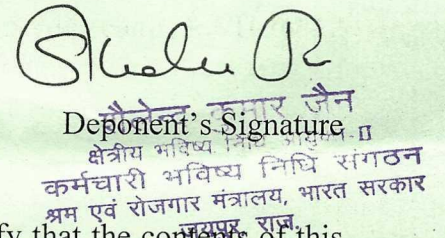 कुमार जैन
Deponent's Signature
क्षेत्रीय भविष्य निधि आयुक्त-II
कर्मचारी भविष्य निधि संगठन
श्रम एवं रोजगार मंत्रालय, भारत सरकार
जयपुर, राज.
fy that the contents of this